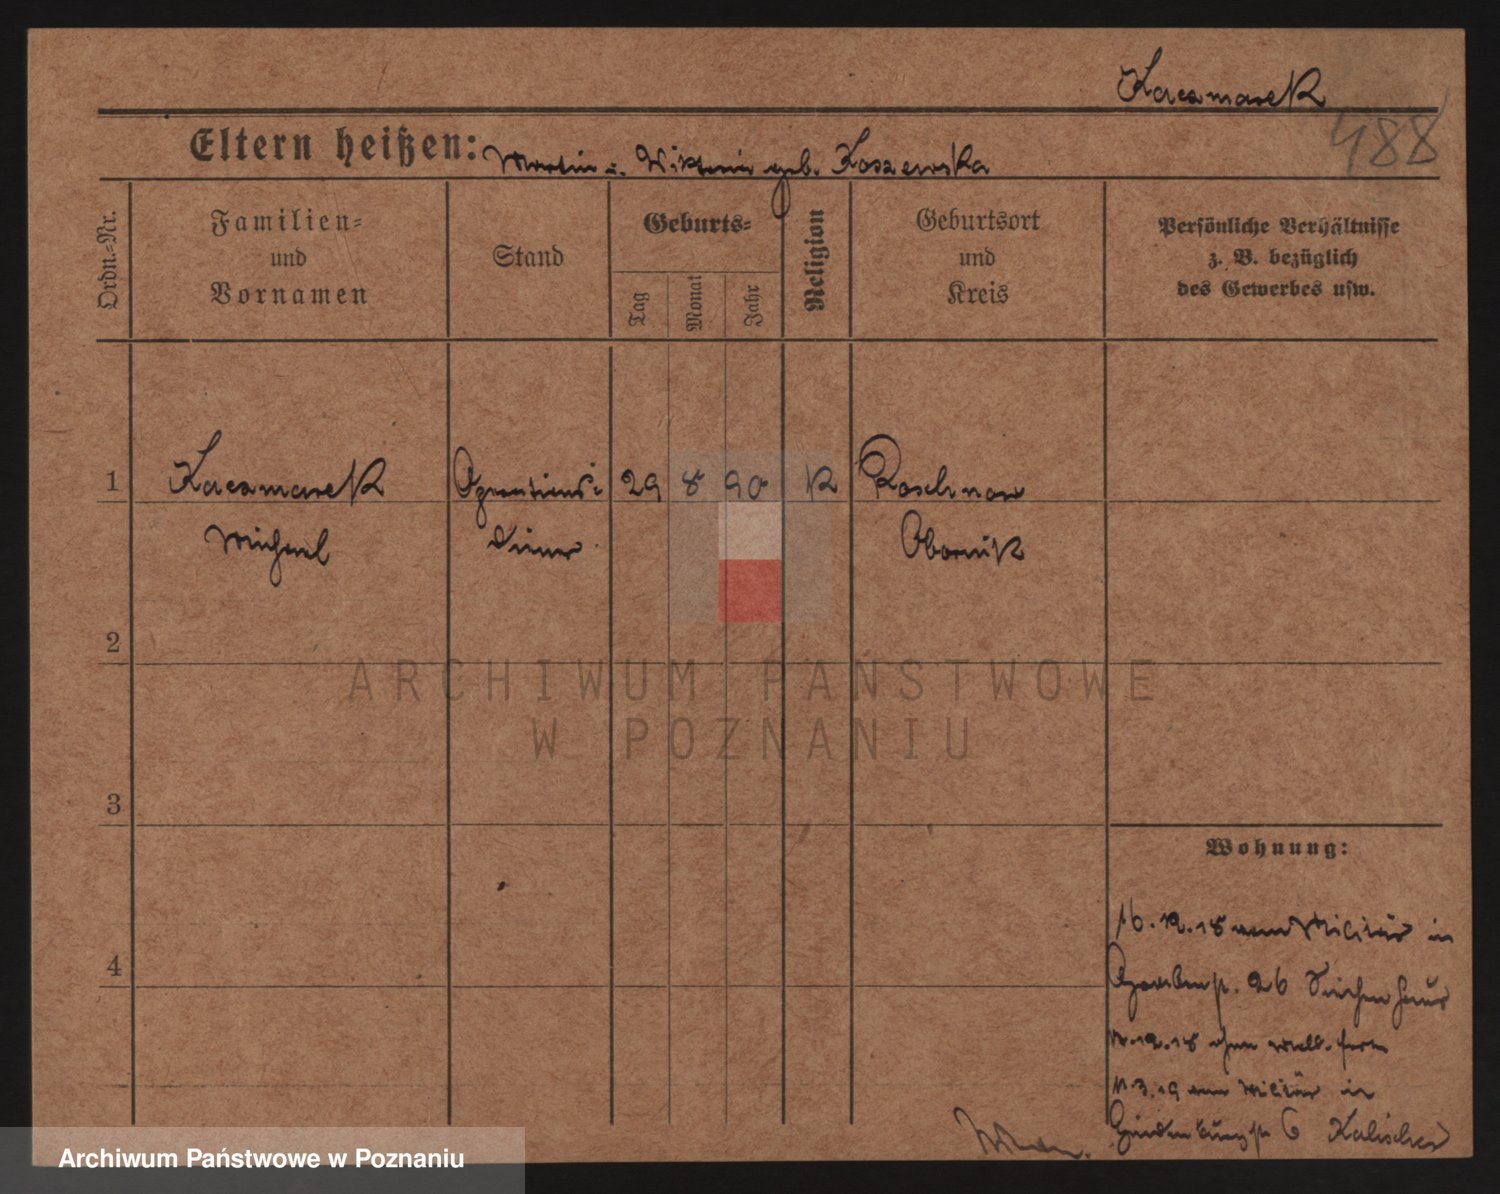 Kaczmarek
488
Eltern heißen: Martin u. Viktoria geb. Koszewska
Ordn.-Nr.
Familien-
und
Vornamen
Stand
Geburts-
Tag
Monat
Jahr
Religion
Geburtsort
und
Kreis
Persönliche Verhältnisse
z. B. bezüglich
des Gewerbes usw.
1
Kaczmarek
29 8 90
K
Roschnowo
Michael
Diener
Obornik
2
3
4
Wohnung:
16.12.18 vom Militär in
26
.12.18 ohne
11.3.19 vom Militär in
6 Kalischer
ARCHIWUM PAŃSTWOWE
W POZNANIU
Archiwum Państwowe w Poznaniu